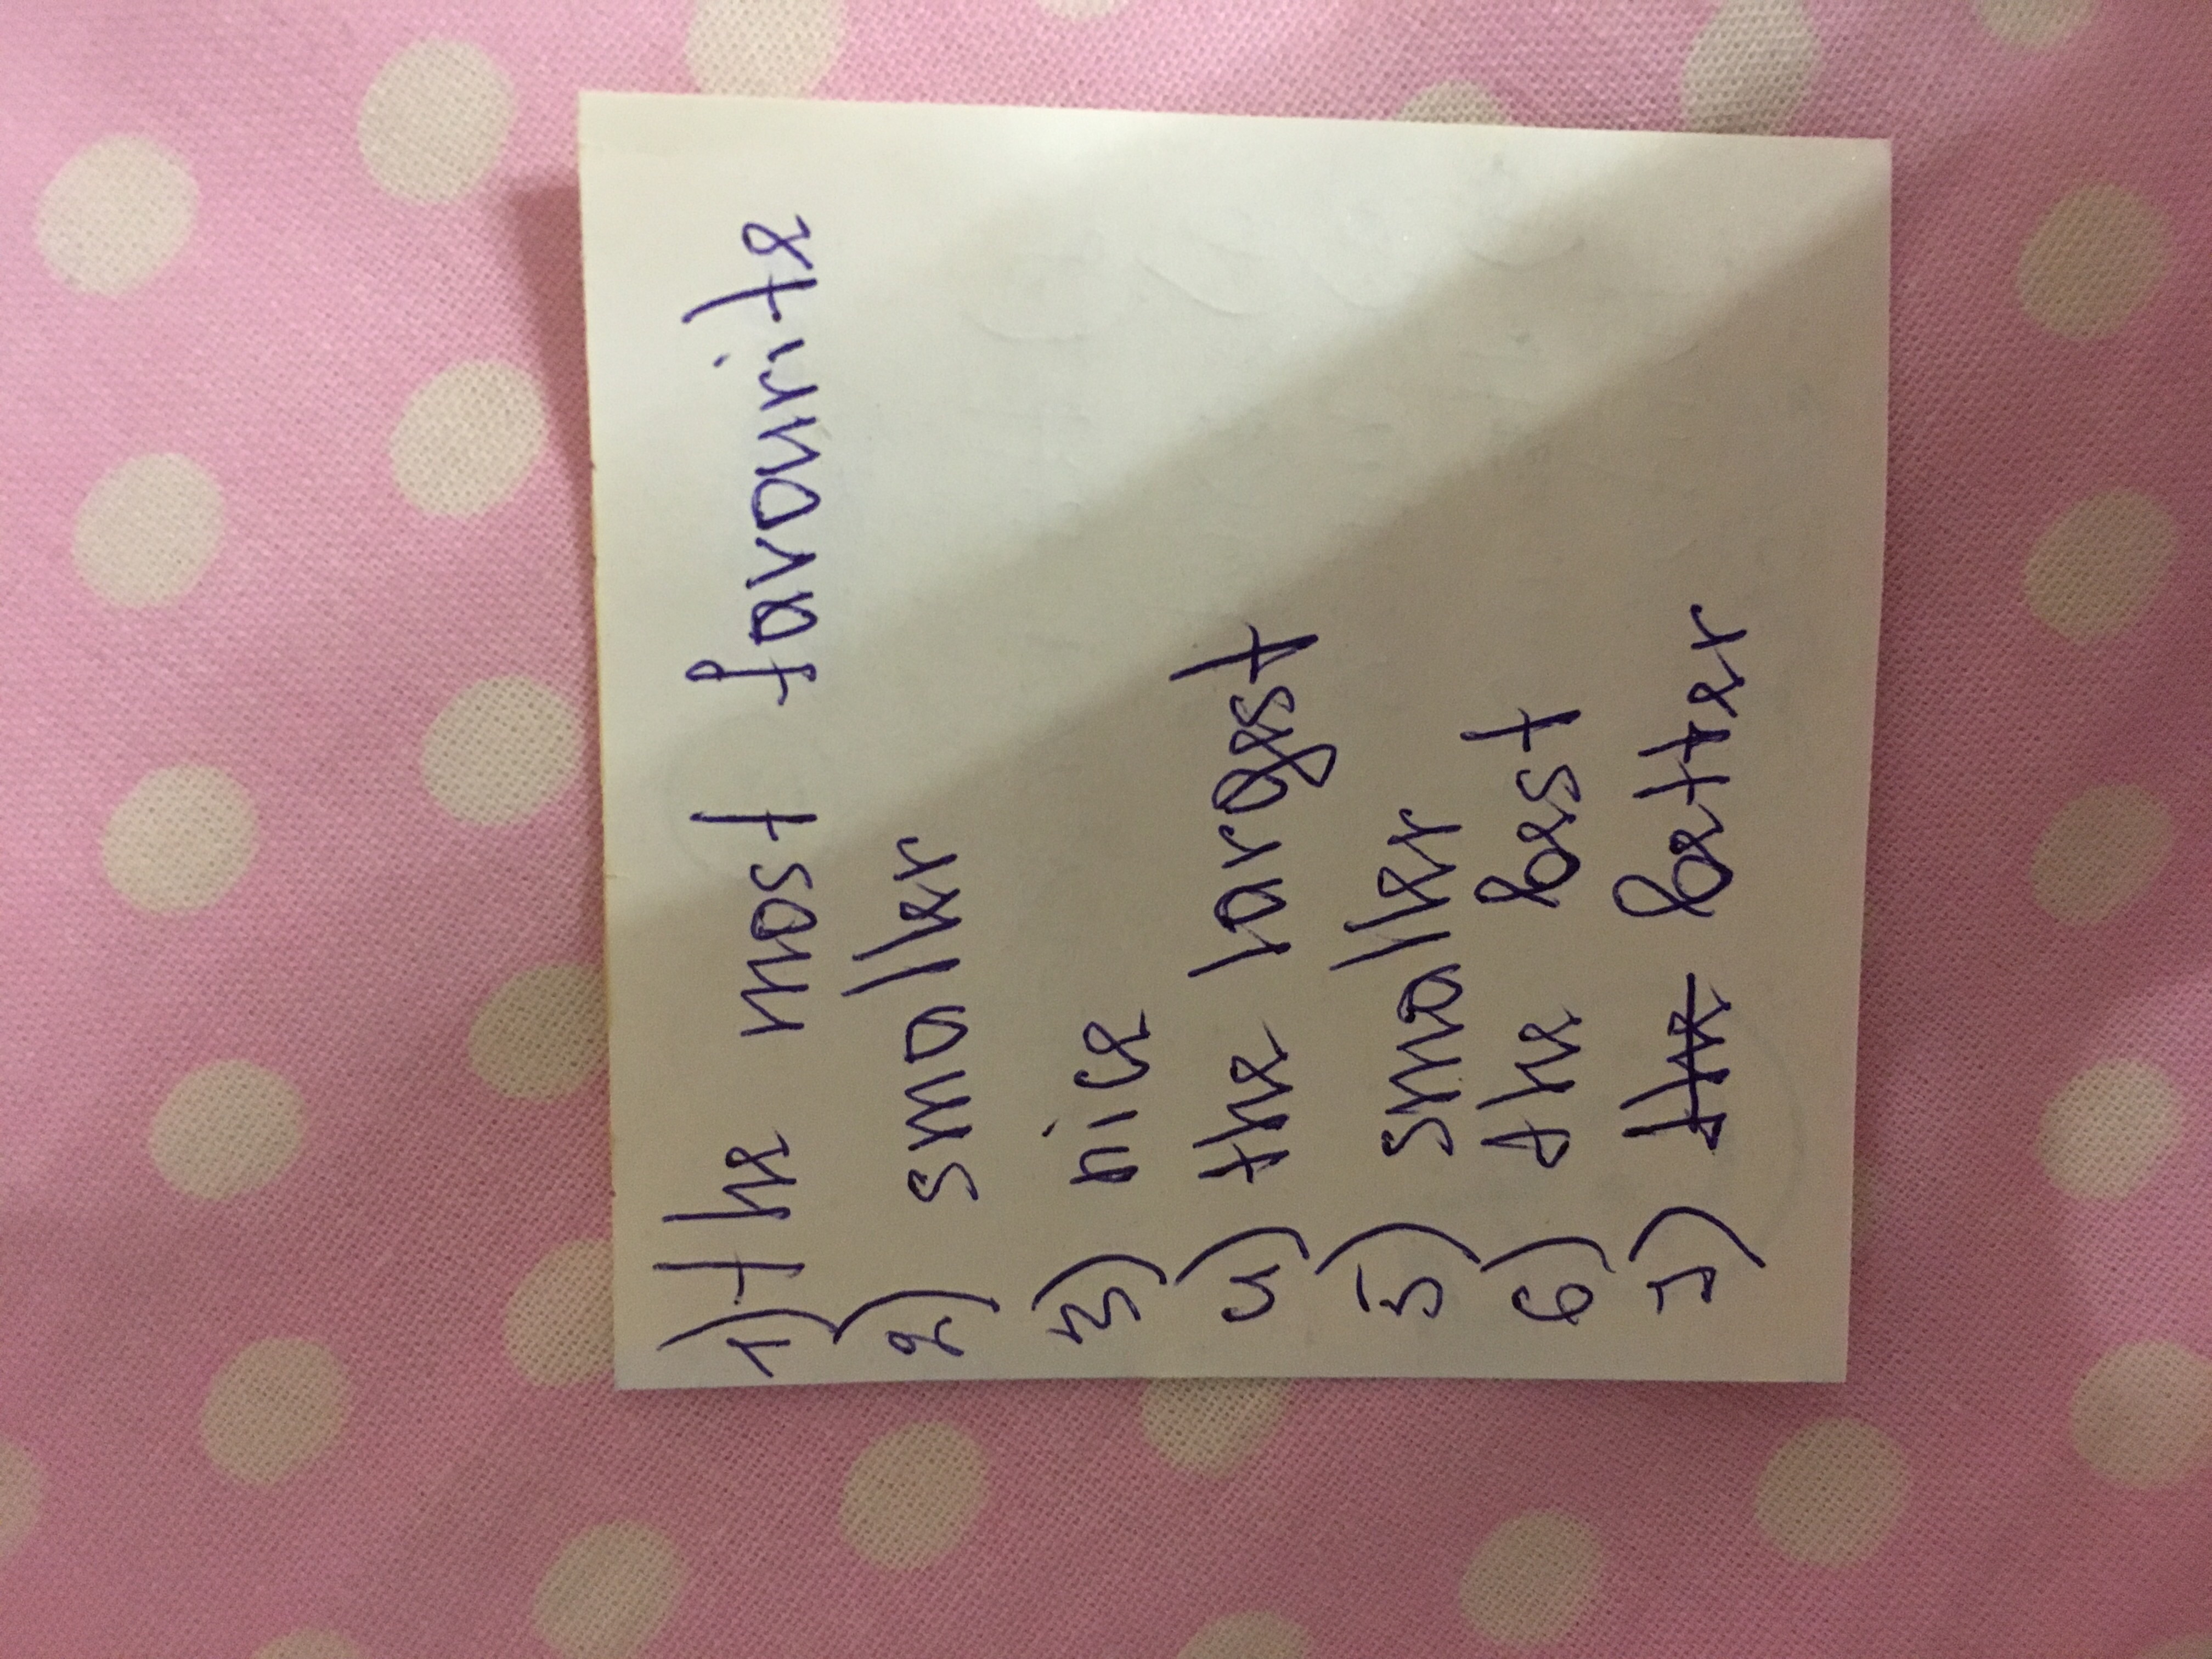 1) the most favourite
2) smaller
3) nice
4) the largest
5) smaller
6) the best
7) the better